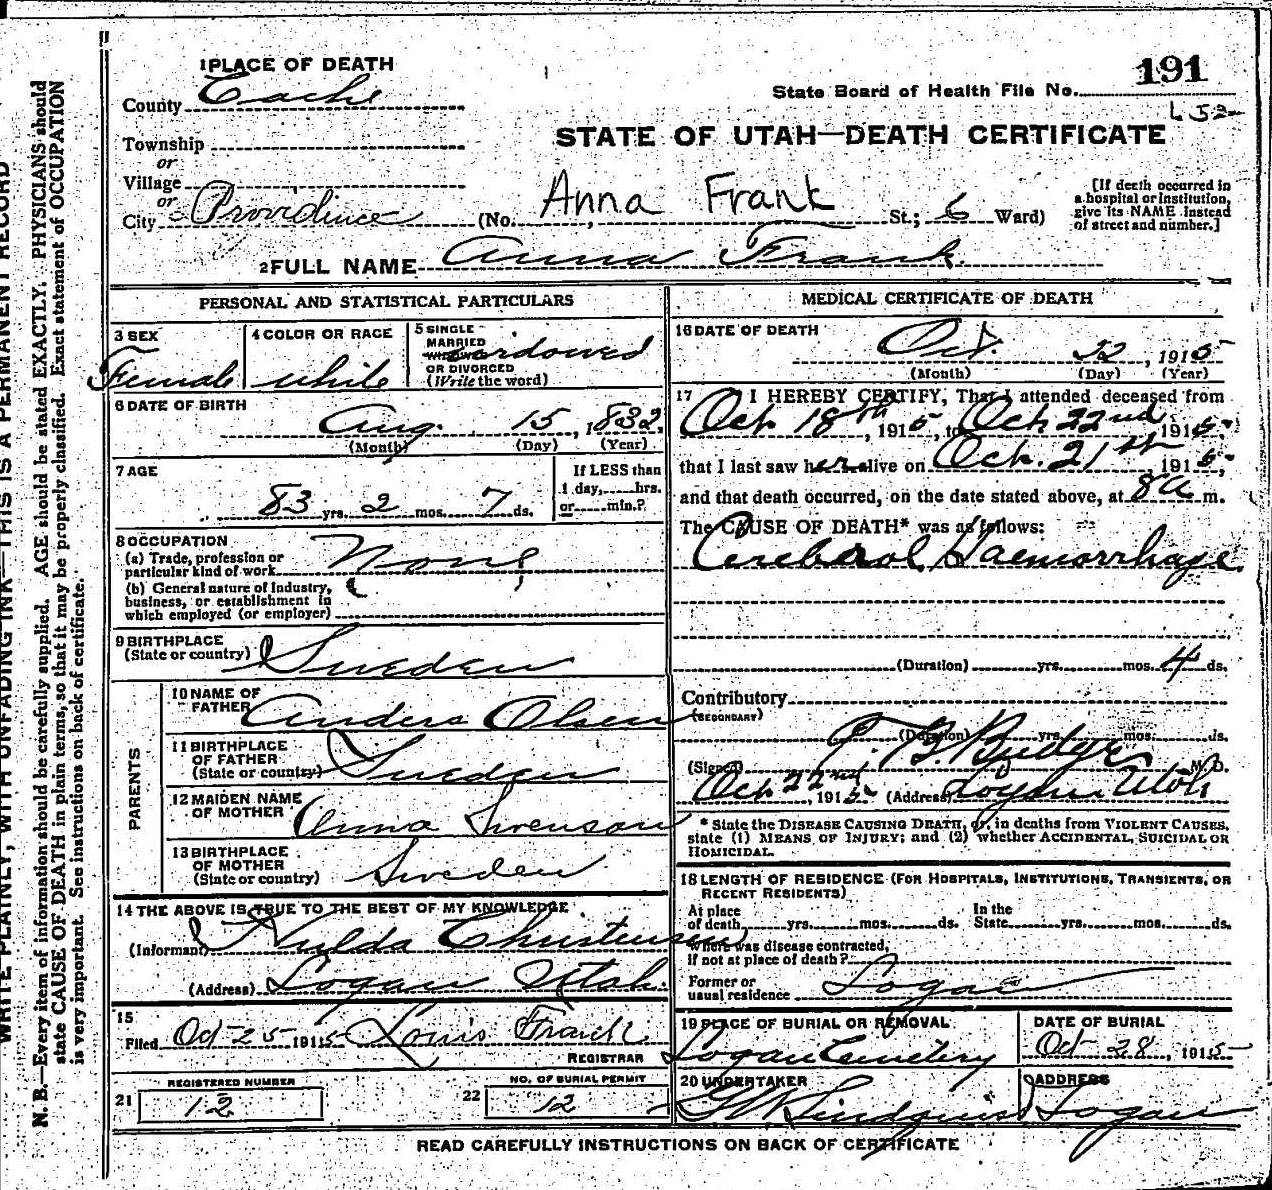 191
State Board of Health File No.
STATE OF UTAH—DEATH CERTIFICATE
1 PLACE OF DEATH
County Cache
Township
or
Village
or
City Providence (No. Anna Frank St.; 6 Ward)
[If death occurred in
a hospital or institution,
give its NAME instead
of street and number.]
2 FULL NAME Anna Frank
PERSONAL AND STATISTICAL PARTICULARS
3 SEX
Female
4 COLOR OR RACE
white
5 SINGLE
MARRIED
WIDOWED
OR DIVORCED
(Write the word)
widowed
6 DATE OF BIRTH
Aug. 15, 1832
(Month) (Day) (Year)
7 AGE
83 yrs. 2 mos. 7 ds.
If LESS than
1 day, hrs.
or min.?
8 OCCUPATION
(a) Trade, profession or
particular kind of work None
(b) General nature of industry,
business, or establishment in
which employed (or employer)
9 BIRTHPLACE
(State or country) Sweden
PARENTS
10 NAME OF
FATHER Anders Olsen
11 BIRTHPLACE
OF FATHER
(State or country) Sweden
12 MAIDEN NAME
OF MOTHER Anna Swenson
13 BIRTHPLACE
OF MOTHER
(State or country) Sweden
14 THE ABOVE IS TRUE TO THE BEST OF MY KNOWLEDGE
(Informant) Hulda Christensen
(Address) Logan Utah.
15
Filed Oct 25 1915 Louis Frank
REGISTRAR
REGISTERED NUMBER
21 12
NO. OF BURIAL PERMIT
22 12
MEDICAL CERTIFICATE OF DEATH
16 DATE OF DEATH
Oct. 22, 1915
(Month) (Day) (Year)
17 I HEREBY CERTIFY, That I attended deceased from
Oct 18th, 1915, to Oct 22nd 1915.
that I last saw her alive on Oct. 21st, 1915,
and that death occurred, on the date stated above, at 8 a m.
The CAUSE OF DEATH* was as follows:
Cerebral Haemorrhage
(Duration) yrs. mos. 4 ds.
Contributory
(SECONDARY)
(Duration) yrs. mos. ds.
(Signed) Budge M.D.
Oct 22nd, 1915 (Address) Logan Utah
* State the DISEASE CAUSING DEATH, or, in deaths from VIOLENT CAUSES,
state (1) MEANS OF INJURY; and (2) whether ACCIDENTAL, SUICIDAL OR
HOMICIDAL.
18 LENGTH OF RESIDENCE (FOR HOSPITALS, INSTITUTIONS, TRANSIENTS, OR
RECENT RESIDENTS)
At place
of death yrs. mos. ds.
In the
State yrs. mos. ds.
Where was disease contracted,
if not at place of death?
Former or
usual residence Logan
19 PLACE OF BURIAL OR REMOVAL
Logan Cemetery
DATE OF BURIAL
Oct 28, 1915
20 UNDERTAKER
Lindquist
ADDRESS
Logan
READ CAREFULLY INSTRUCTIONS ON BACK OF CERTIFICATE
WRITE PLAINLY, WITH UNFADING INK—THIS IS A PERMANENT RECORD
N. B.—Every item of information should be carefully supplied. AGE should be stated EXACTLY. PHYSICIANS should
state CAUSE OF DEATH in plain terms, so that it may be properly classified. Exact statement of OCCUPATION
is very important. See instructions on back of certificate.